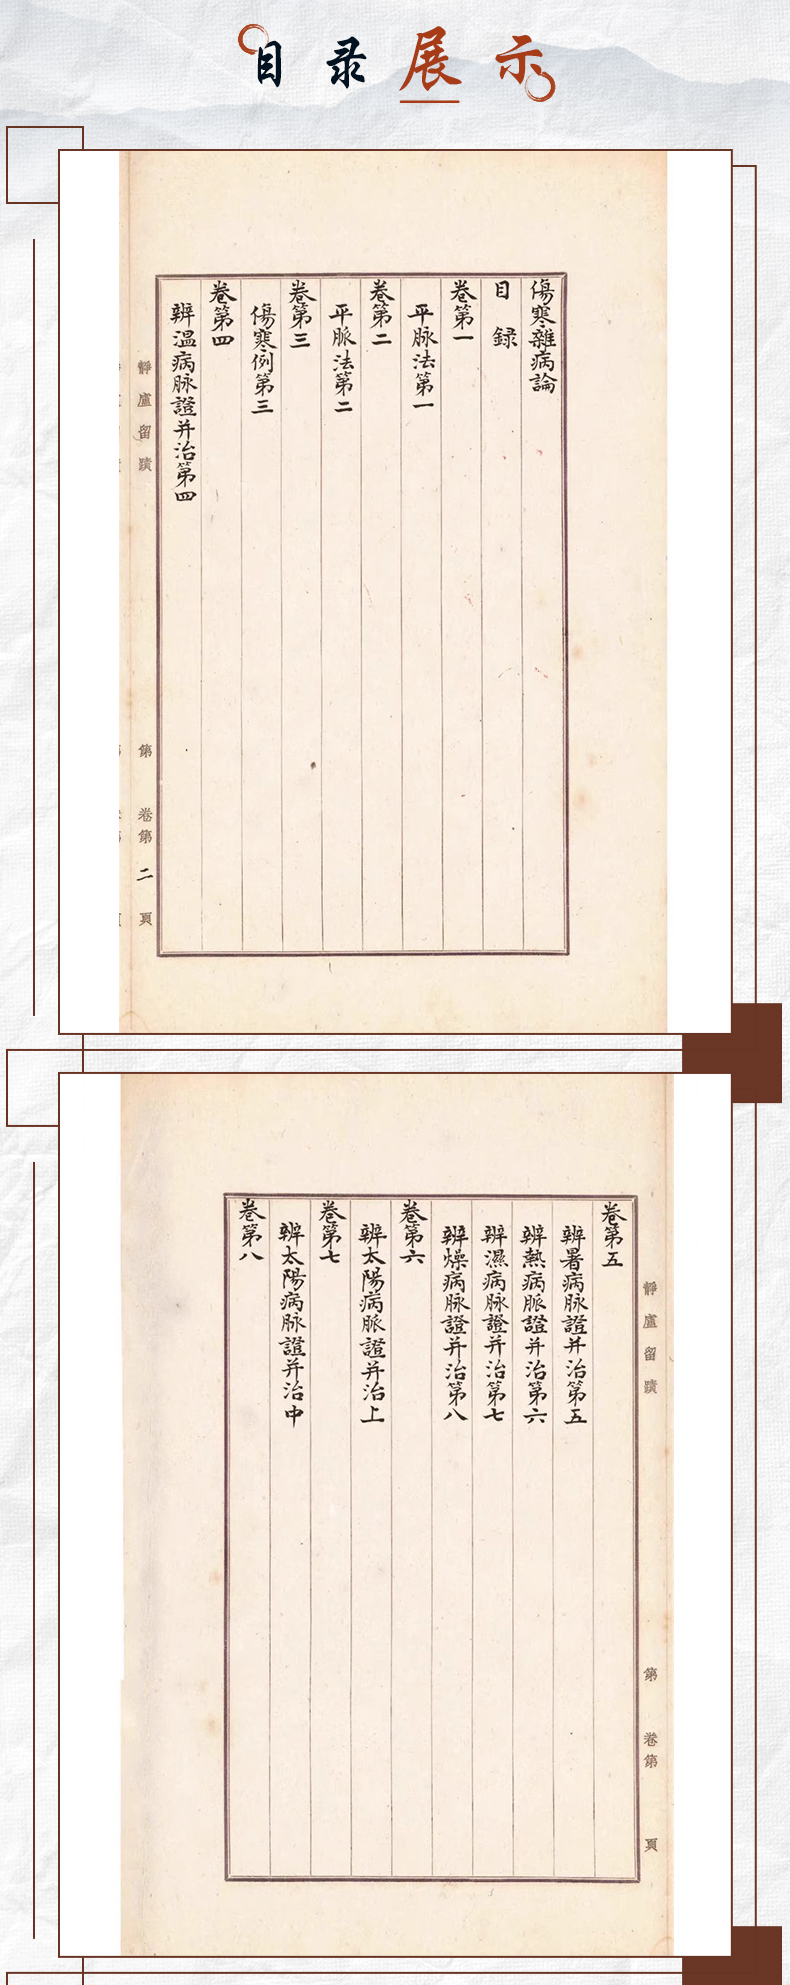 目录展示
傷寒雜病論
目錄
卷第一
平脉法第一
卷第二
平脈法第二
卷第三
傷寒例第三
卷第四
辨溫病脉證并治第四
靜廬留蹟
第
卷第
二
頁
靜廬留蹟
第
卷第
頁
卷第五
辨暑病脉證并治第五
辨熱病脈證并治第六
辨濕病脉證并治第七
辨燥病脉證并治第八
卷第六
辨太陽病脈證并治上
卷第七
辨太陽病脉證并治中
卷第八